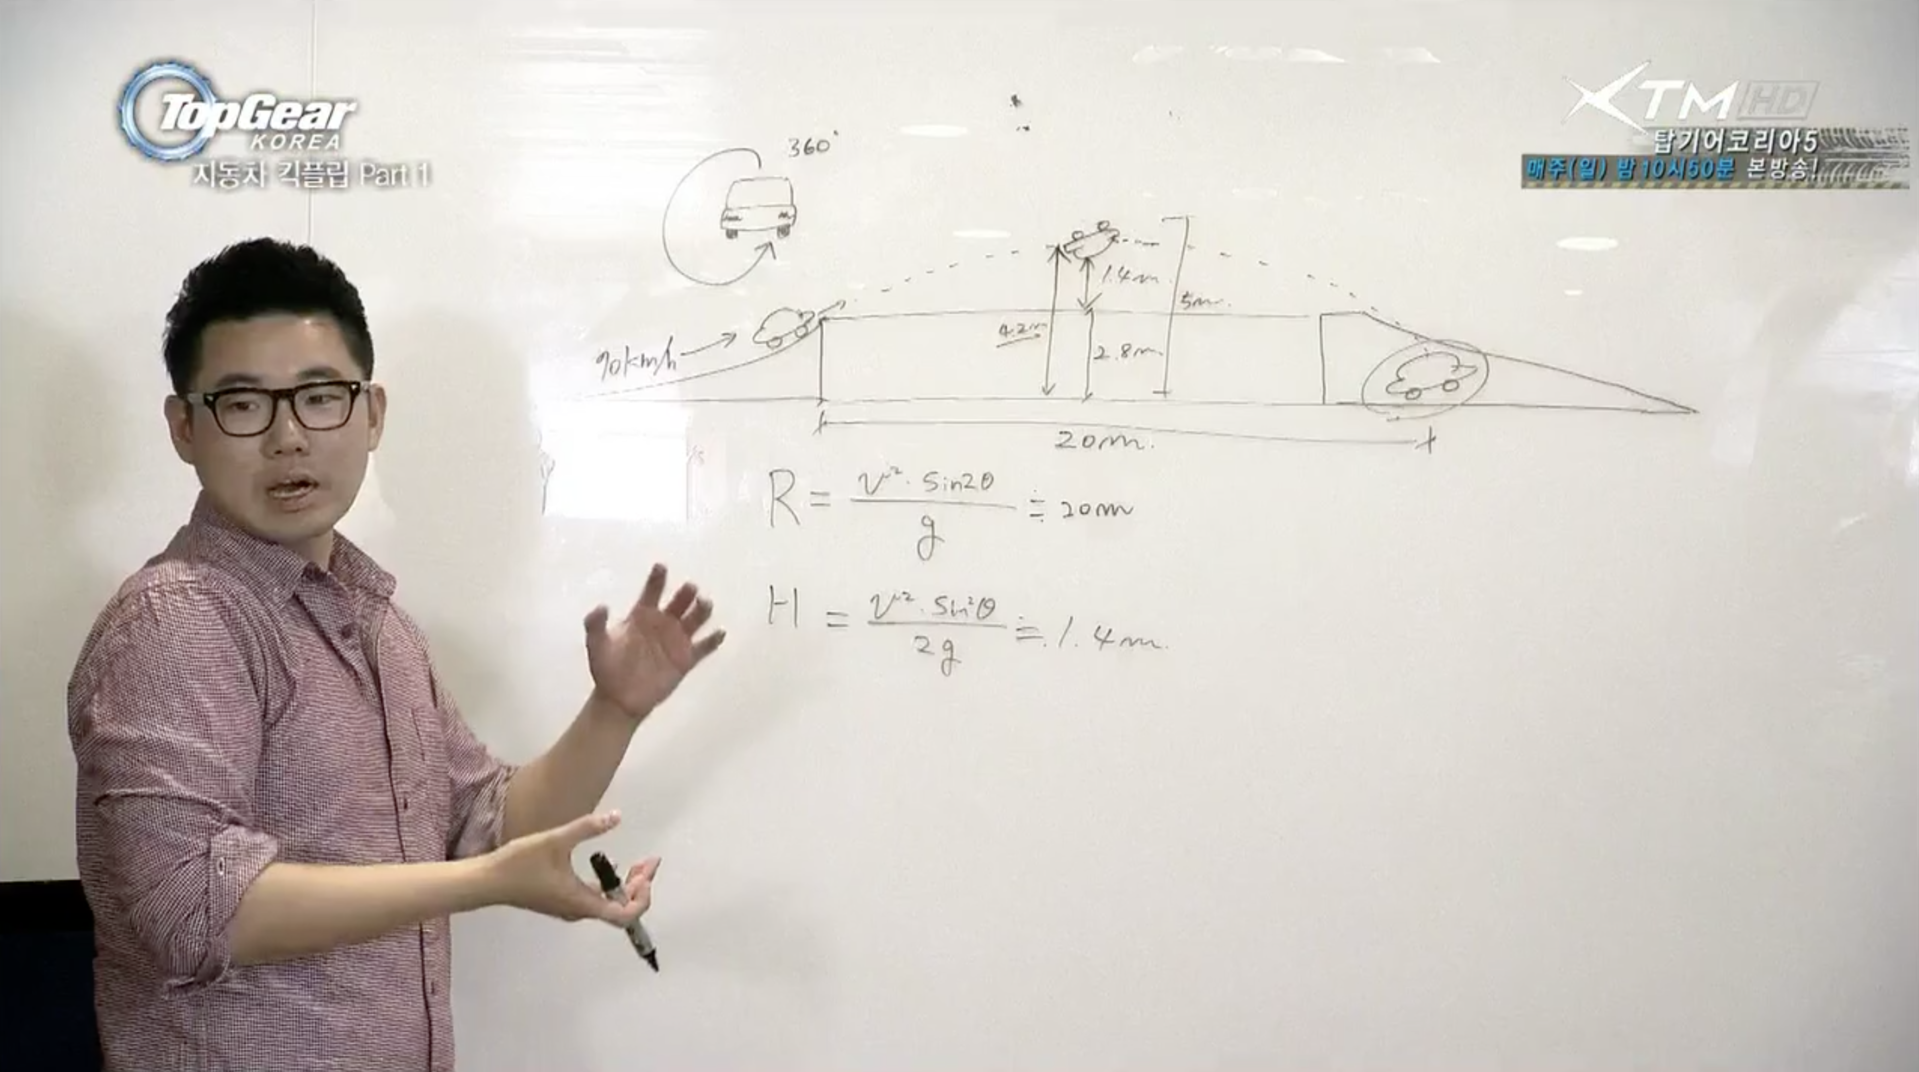 TopGear
KOREA
지동차 킥플립 Part 1
XTM HD
탑기어코리아5
매주(일) 밤10시50분 본방송!
360°
90km/h
1.4m
5m.
4.2m
2.8m
20m.
R = v²·Sin2θ / g ≒ 20m
H = v²·Sin²θ / 2g ≒ 1.4m.